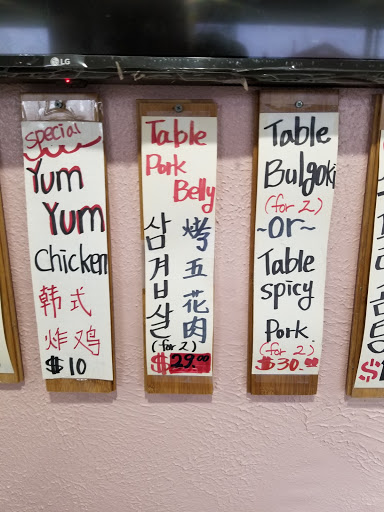 LG
Special
Yum
Yum
Chicken
韩式
炸鸡
$10
Table
Pork
Belly
삼겹살
烤五花肉
(for 2)
$29.00
Table
Bulgoki
(for 2)
~or~
Table
spicy
Pork
(for 2)
$30.00